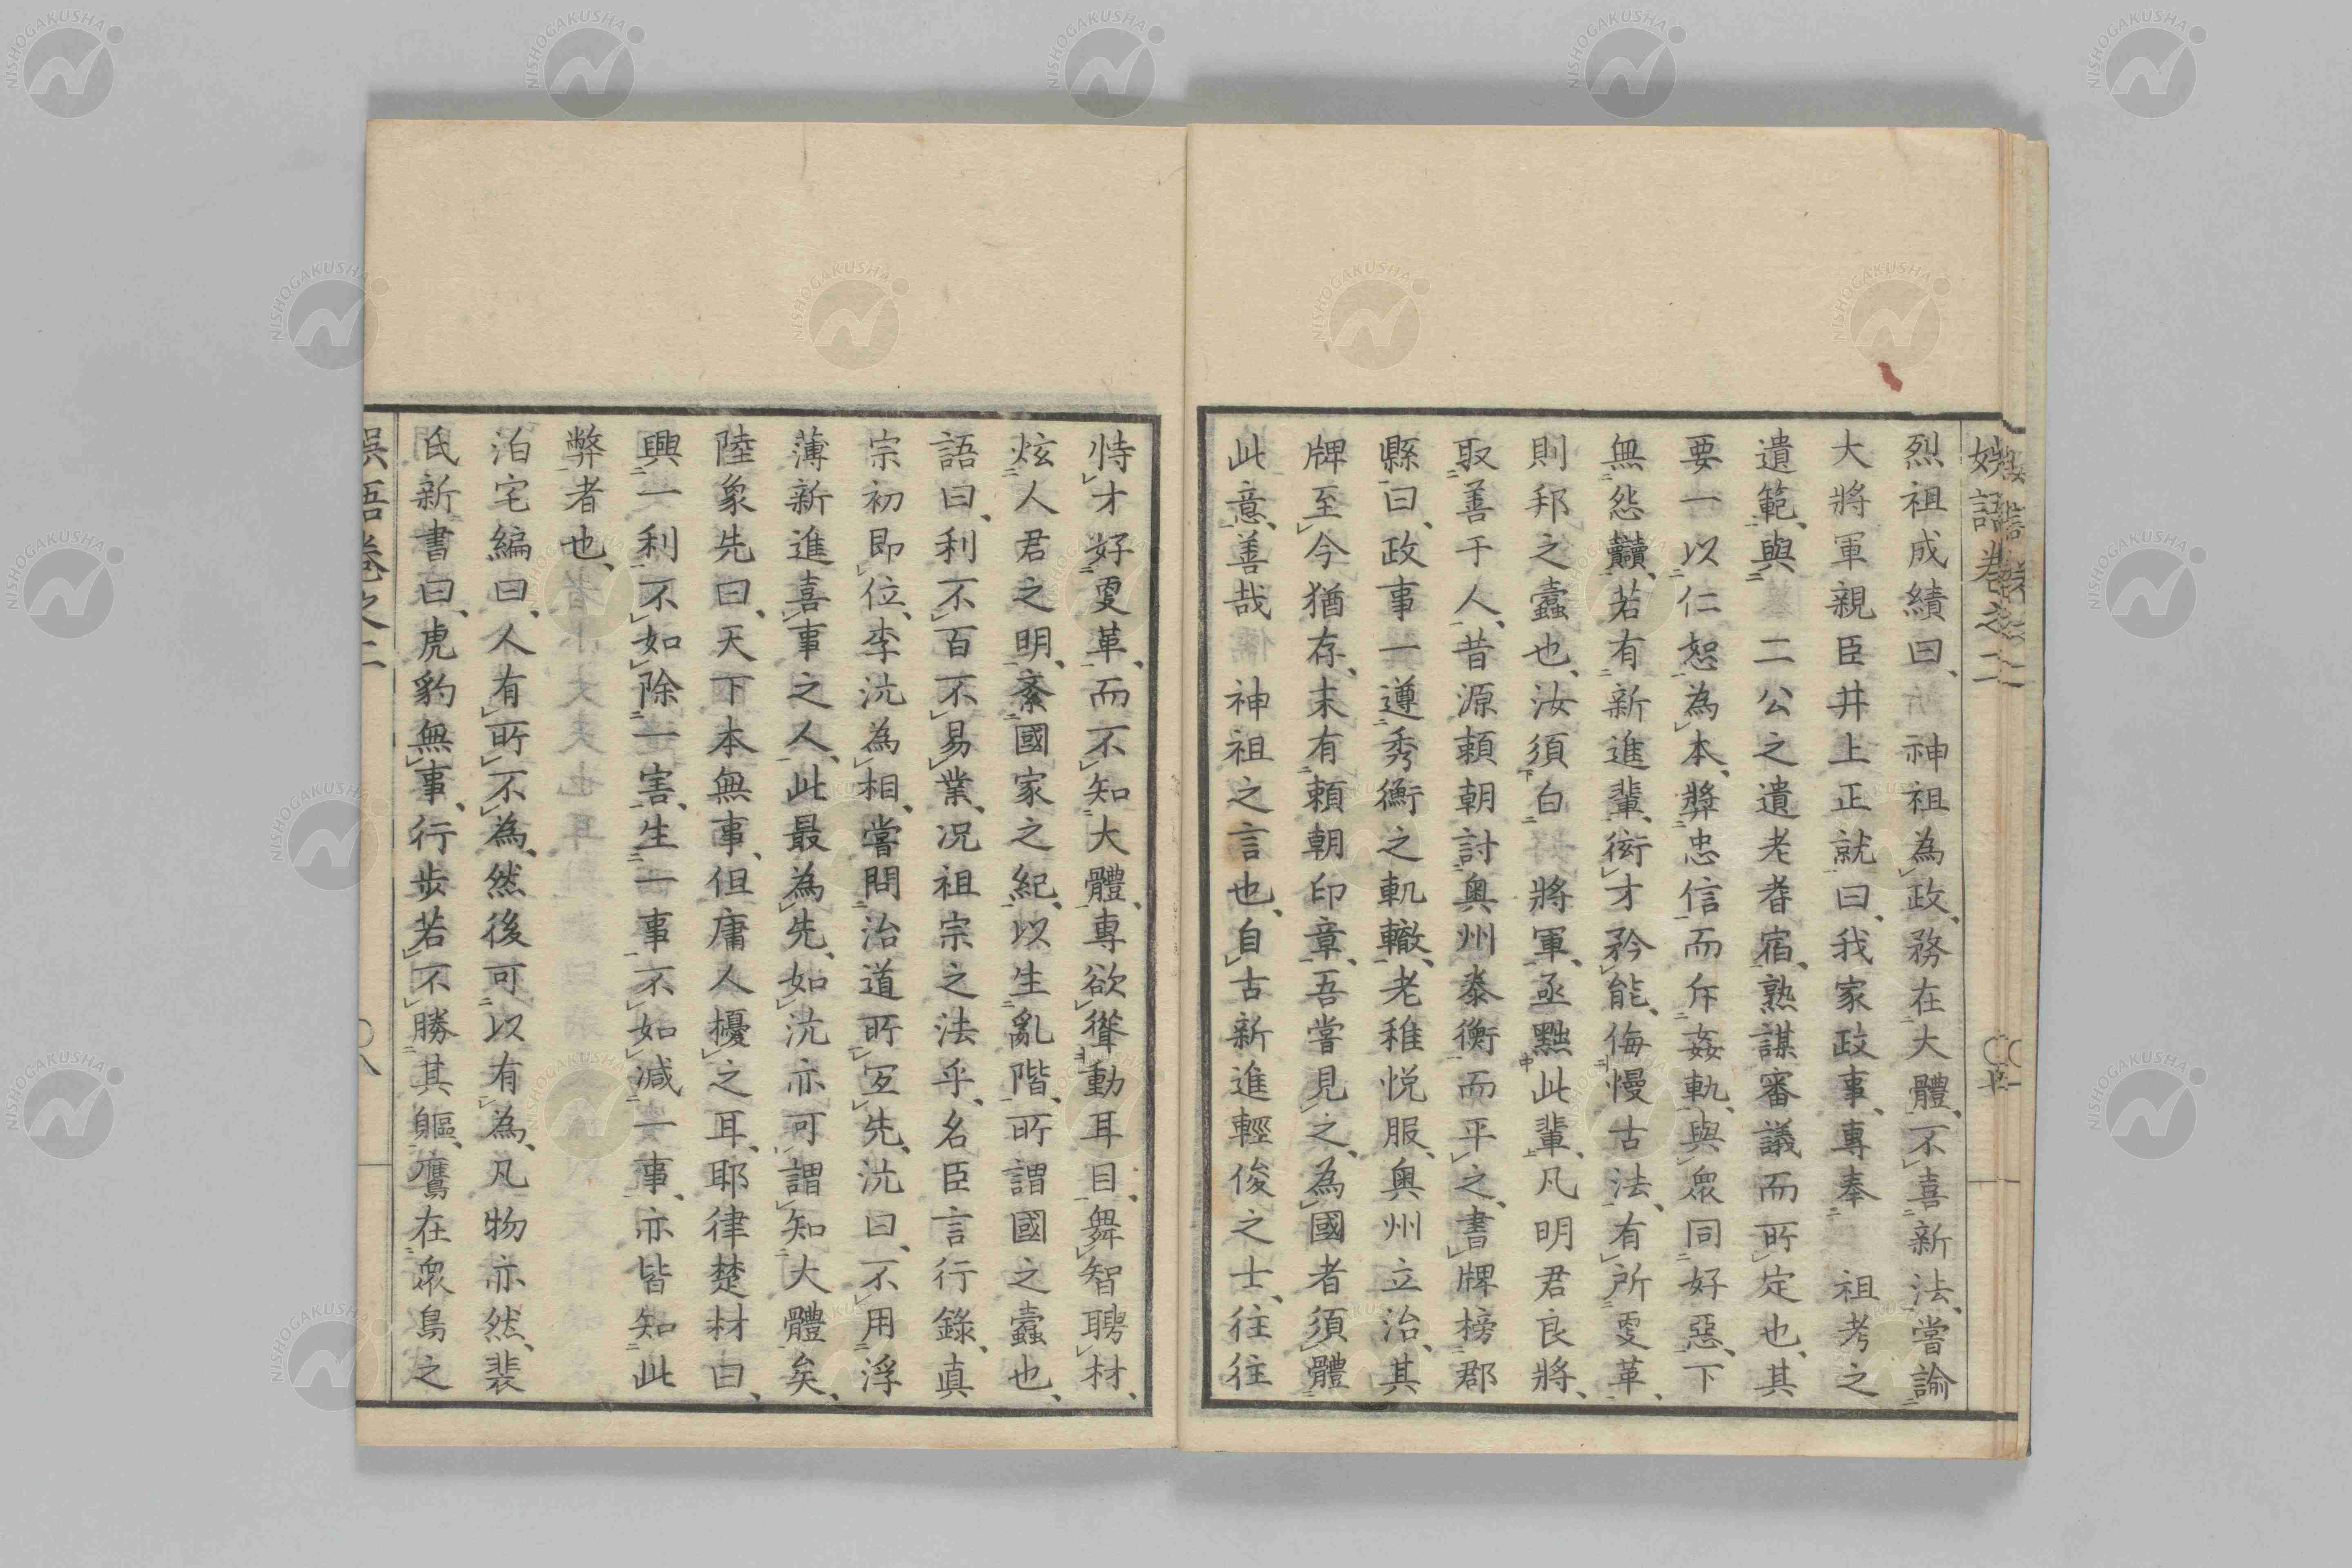 烈祖成績曰、神祖為政、務在大體、不喜新法、嘗諭
大將軍親臣井上正就曰、我家政事、專奉 祖考之
遺範、與 二公之遺老耆宿、熟謀審議而所定也、其
要一以仁恕為本、獎忠信而斥姦軌、與衆同好惡、下
無怨讟、若有新進輩、衒才矜能、侮慢古法、有所變革、
則邦之蠹也、汝須白 將軍、亟黜此輩、凡明君良將、
取善于人、昔源頼朝討奥州泰衡而平之、書牌榜郡
縣曰、政事一遵秀衡之軌轍、老稚悦服、奥州立治、其
牌至今猶存、末有頼朝印章、吾嘗見之、為國者須體
此意、善哉 神祖之言也、自古新進輕俊之士、往往
恃才好變革、而不知大體、專欲聳動耳目、舞智騁材、
炫人君之明、紊國家之紀、以生亂階、所謂國之蠹也、
語曰、利不百不易業、况祖宗之法乎、名臣言行錄、真
宗初即位、李沆為相、嘗問治道所宜先、沆曰、不用浮
薄新進喜事之人、此最為先、如沆亦可謂知大體矣、
陸象先曰、天下本無事、但庸人擾之耳、耶律楚材曰、
興一利不如除一害、生一事不如減一事、亦皆知此
弊者也、
泊宅編曰、人有所不為、然後可以有為、凡物亦然、裴
氏新書曰、虎豹無事、行步若不勝其軀、鷹在衆鳥之